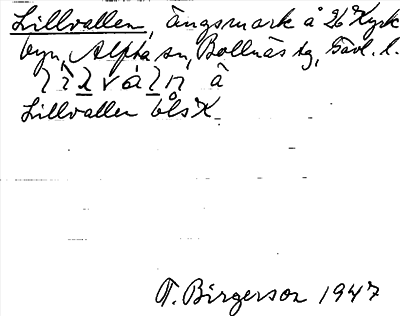 Lillvallen, Ängsmark å 26 Kyrk
byn, Alfta sn, Bollnäs tg, Gävl. l.
å
Lillvallen
T. Birgerson 1947